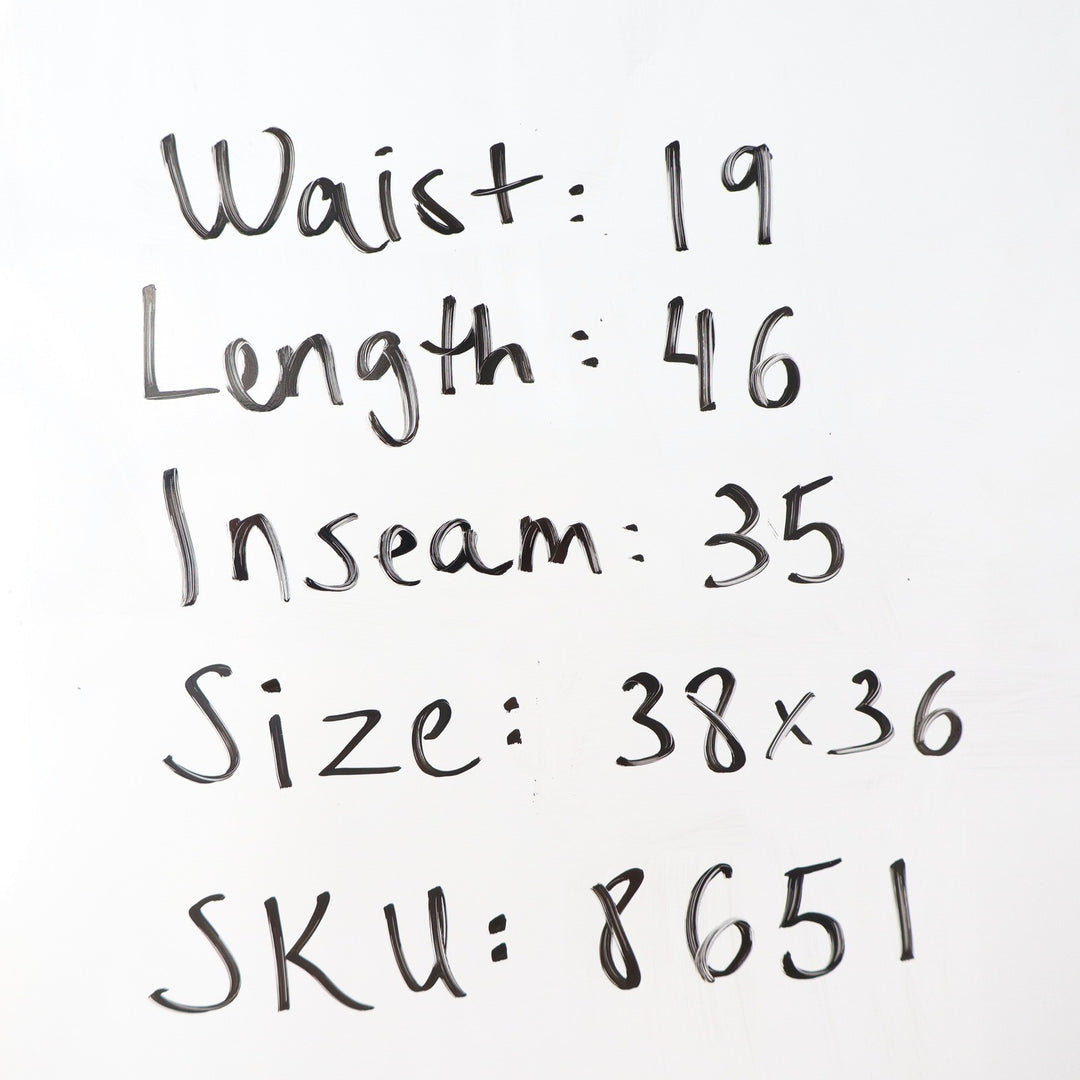 Waist: 19
Length: 46
Inseam: 35
Size: 38x36
SKU: 8651